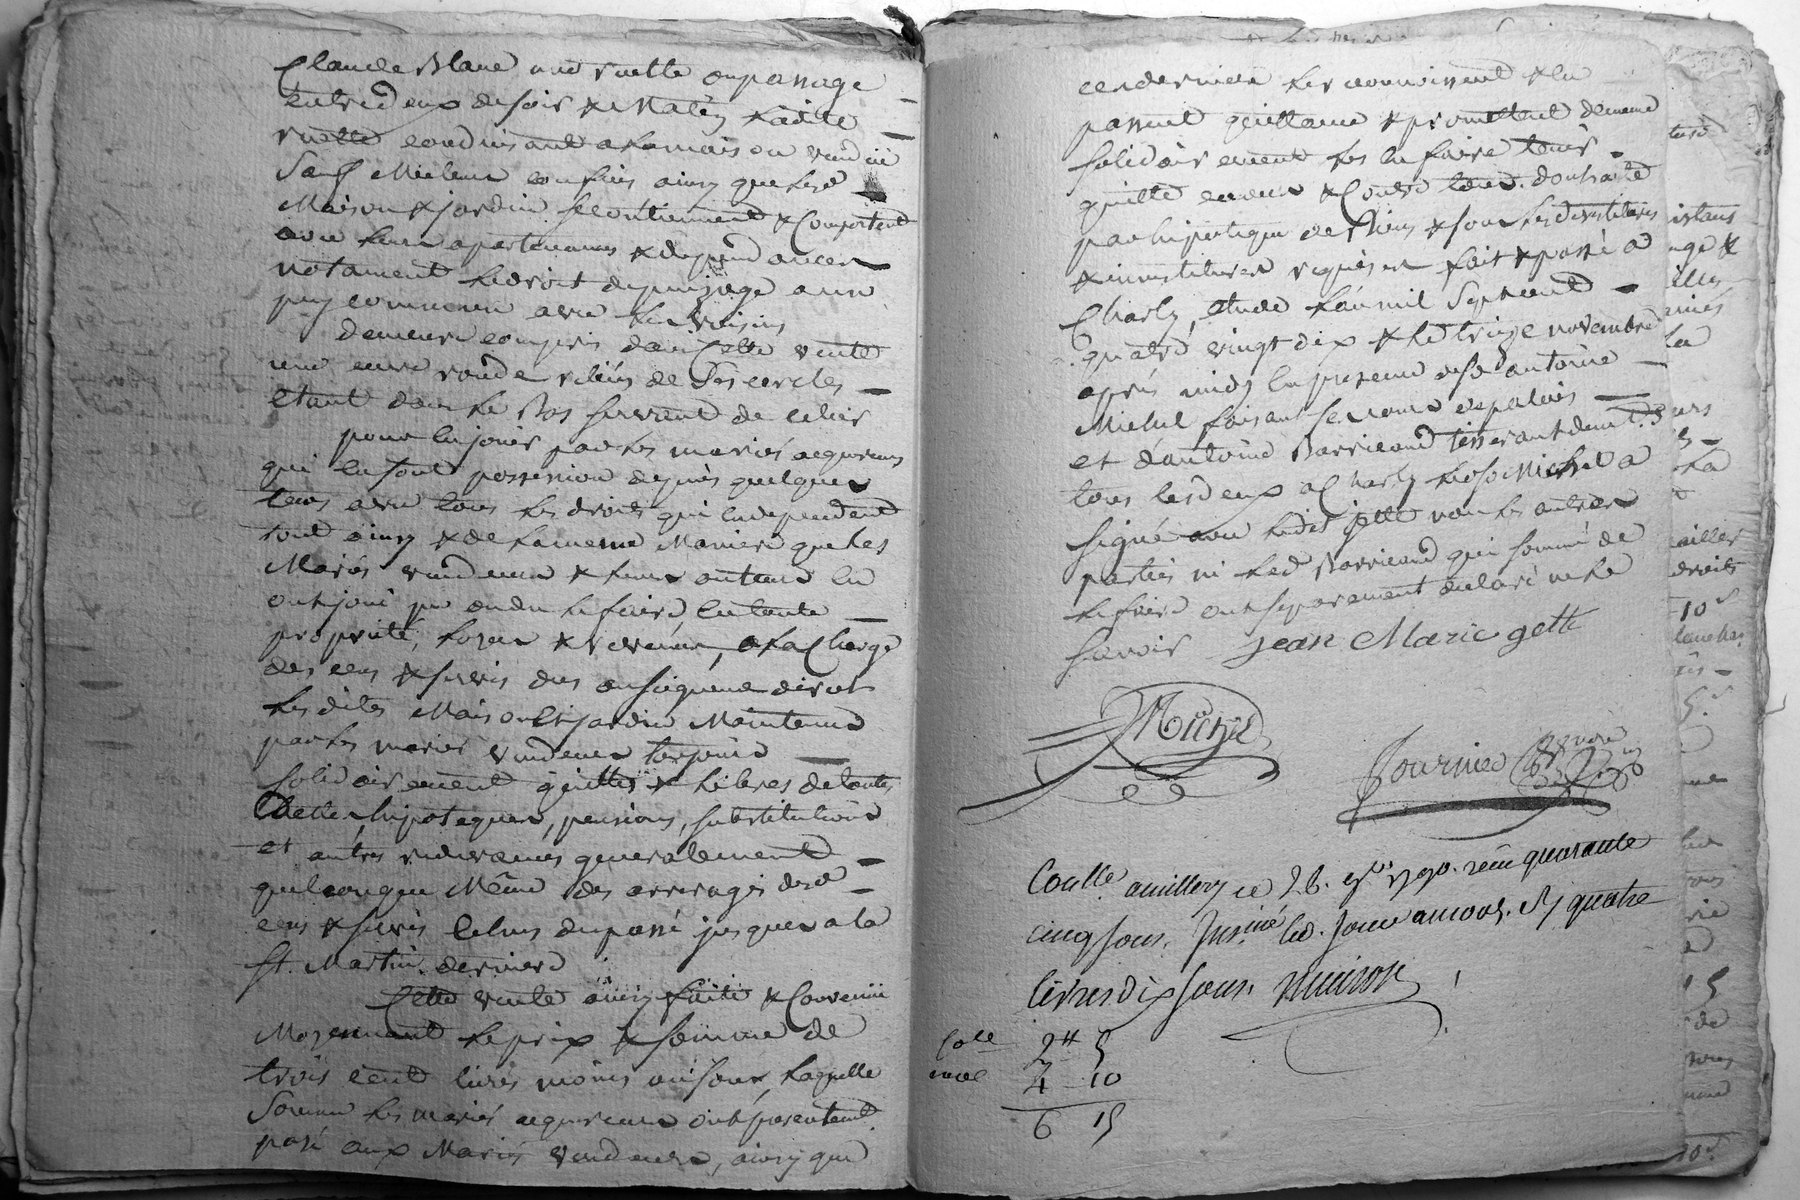 Claude Blanc une ruelle ou passage
entredeux de soir & Matin ladite
ruelle conduisant a la maison vendüe
Sauf Meilleurs confins ainsy que lesd
Maison & jardin se contiennent & Comportent
avec leurs apartenances & dependances
notament le droit de puisage a un
puy commun avec les voisins
demeure compris dans Cette vente
une cuve ronde reliée de cercles
etant dans le Bas servant de celier
pour en jouir par les mariés acquereurs
qui en sont possession depuis quelques
tems avec tous les droits qui en dependent
tout ainsy & de la meme Maniere que les
Mariés vendeurs & leurs auteurs en
ont joui pu ou du le faire, en toute
proprieté, & revenus, a la Charge
des cens & servis dus au seigneur direct
lesdites Maison et jardin Maintenus
par les mariés vendeurs
solidairement quittes & libres de toutes
dettes hipoteques, pensions, substitutions
et autres redevances generalement
quelconques Même des arrerages desd
cens & servis echus du passé jusques a la
St. Martin derniere
Cette vente ainsy faite & Convenüe
Moyennant le prix & somme de
trois cent livres moins sous, laquelle
Somme les mariés acquereurs ont presentement
payé aux Mariés vendeurs, ainsy que
ces derniers le reconnoissent & en
passent quittance & promettent de meme
solidairement les en faire tenir
quitte envers & Contre tous. dont acte
par hipoteque de Biens & sous les
& requises fait & passé a
Charly, etude l'an mil sept cent
quatre vingt dix & le treize novembre
après midy en presence de sr antoine
Michel faisant
et d'antoine Barricand tisserant demt.
tous les deux a Charly led sr Michel a
signé avec ledit jette non les autres
parties ni led Barricand qui sommé de
le faire ont separement declaré ne le
savoir Jean Marie gette
Michel
Fournier
Coulle amillery ce 26. 9bre 1790. reçu quarante
cinq sous. Insiné led. jour au vol. quatre
livres dix sous.
Cole 2tt 5
4 10
6 15